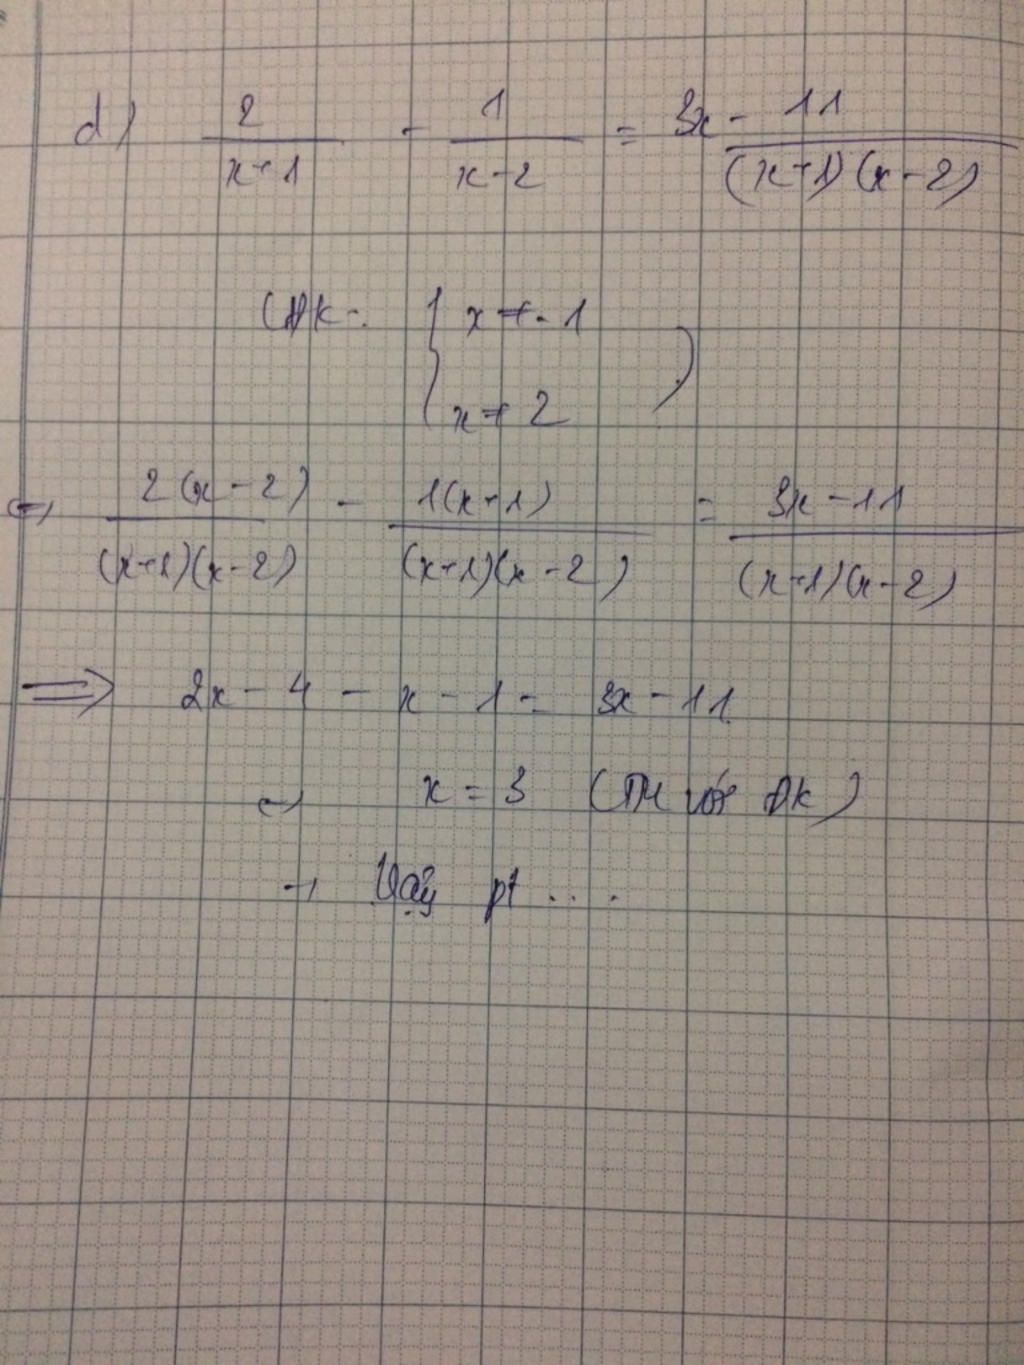 d) 2/(x+1) - 1/(x-2) = 3x - 11/(x+1)(x-2)
(ĐK: { x ≠ -1
x ≠ 2 )
⇔ 2(x-2)/(x+1)(x-2) - 1(x+1)/(x+1)(x-2) = 3x-11/(x+1)(x-2)
⇒ 2x - 4 - x - 1 = 3x - 11
⇔ x = 3 (TM với ĐK)
→ Vậy pt ...